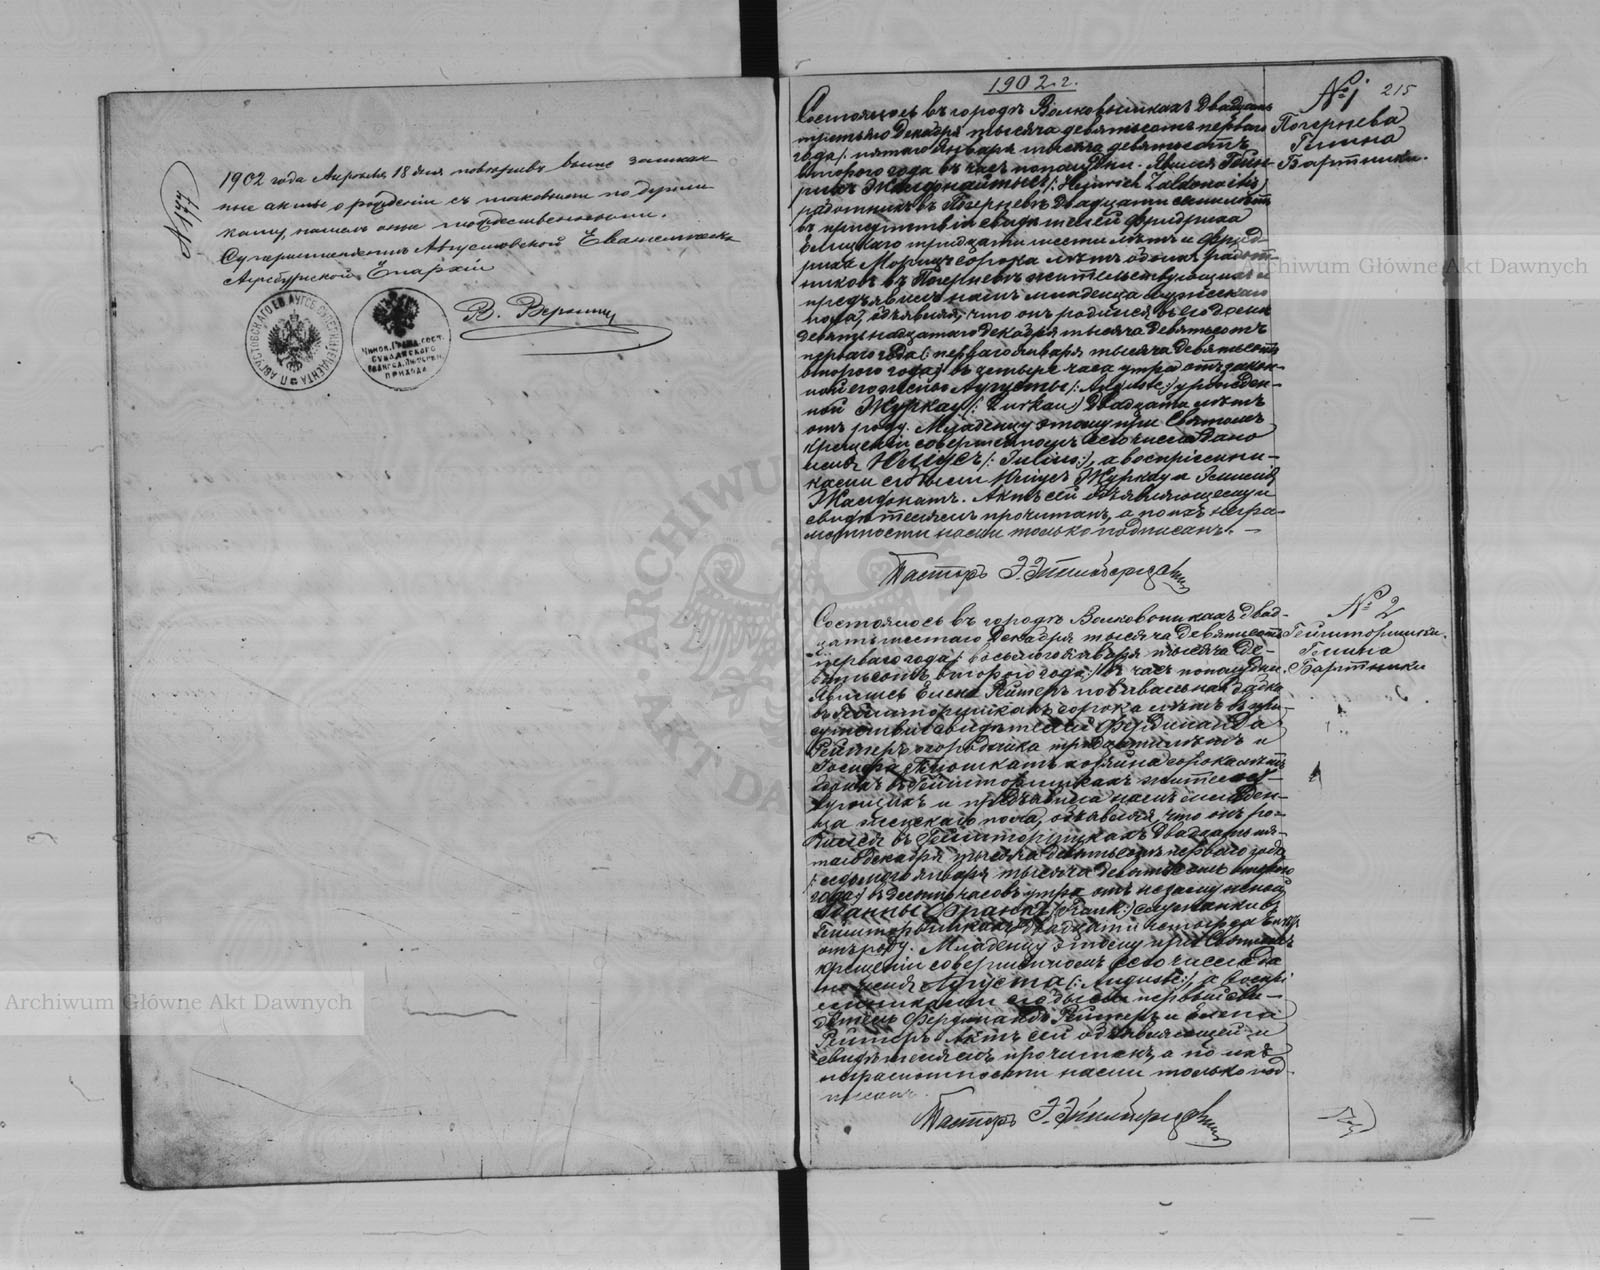 № 177
1902 года Апреля 18 дня поверивъ выше записан-
ные акты о рождении съ таковыми по дупли-
кату, нашелъ оные тождественными.
Суперинтендентъ Августовской Евангелическо-
Аугсбургской Епархіи
П АВГУСТОВСКАГО ЕВ. АУГСБ. СУПЕРИНТЕНДЕНТА
Чинов. Гражд. сост.
СУВАЛКСКАГО
Евангел. Лютеран.
ПРИХОДА
1902 г.
№ 1
215
Погернева
Гмина
Бартники.
Состоялось въ городѣ Волковышкахъ Двадцать
третьяго Декабря тысяча девятьсотъ перваго
года /: пятаго Января тысяча девятьсотъ
втораго года въ часъ пополудни. Явился Гейн-
рихъ Жалдонайтысъ /: Heinrich Zaldonaitis:/
работникъ въ Погерневѣ Двадцати семи лѣтъ
въ присутствіи свидѣтелей Фридриха
тридцати шести лѣтъ и Фрид-
риха Морица сорока лѣтъ обоихъ работ-
никовъ въ Погерневѣ жительствующихъ и
предъявилъ намъ младенца мужескаго
пола, объявляя, что онъ родился въ его домѣ
девятьнадцатаго Декабря тысяча девятьсотъ
перваго года /: перваго Января тысяча девятьсотъ
втораго года:/ въ четыре часа утра отъ закон-
ной его жены Аугусты /: Auguste:/ урожден-
ной Журкау /: Zurkau:/ Двадцати лѣтъ
отъ роду. Младенцу этому при Святомъ
Крещеніи совершенномъ сего числа дано
имя Юліусъ /: Julius:/, а воспріемни-
ками его были Юліусъ Журкау и Эмилія
Жалдонатъ. Актъ сей объявляющему и
свидѣтелямъ прочитанъ, а по ихъ негра-
мотности нами только подписанъ. —
Пасторъ Э.
№ 2
Гейшторишки.
Гмина
Бартники
Состоялось въ городѣ Волковышкахъ Двад-
цать шестаго Декабря тысяча девятьсотъ
перваго года /: восьмого Января тысяча де-
вятьсотъ втораго года:/ въ часъ пополудни.
Явилась Елена Рейтеръ повивальная бабка
въ Гейшторишкахъ сорока лѣтъ въ при-
сутствіи свидѣтелей Фердинанда
Рейтеръ огородника тридцати лѣтъ и
сорока лѣтъ
обоихъ въ Гейшторишкахъ жительст-
вующихъ и предъявила намъ младен-
ца женскаго пола, объявляя, что онъ ро-
дился въ Гейшторишкахъ Двадцать пя-
таго Декабря тысяча девятьсотъ перваго года
/: седьмого Января тысяча девятьсотъ втораго
года:/ въ десять часовъ утра отъ незамужней
Анны Франкъ /: Frank:/ служанки въ
Гейшторишкахъ двадцати четырехъ лѣтъ
отъ роду. Младенцу этому при Святомъ
крещеніи совершенномъ сего числа да-
но имя Аугуста /: Auguste:/, а воспрі-
емниками его были первый сви-
дѣтель Фердинандъ Рейтеръ и Елена
Рейтеръ. Актъ сей объявляющей и
свидѣтелямъ прочитанъ, а по ихъ
неграмотности нами только под-
писанъ.
Пасторъ Э.
ARCHIWUM
AKT DAWNYCH
Archiwum Główne Akt Dawnych
Archiwum Główne Akt Dawnych